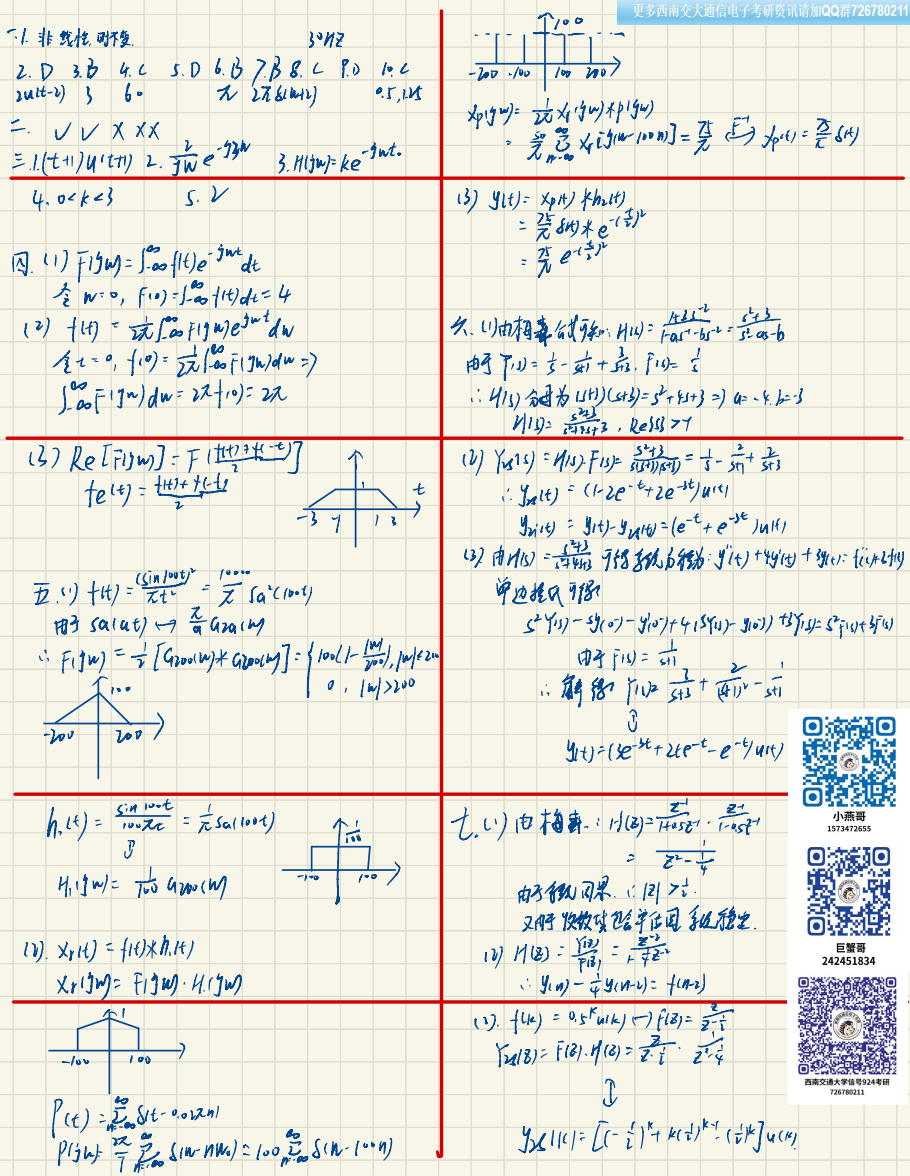 更多西南交大通信电子考研资讯请加QQ群726780211
一.1. 非线性,时不变. 30HZ
2. D 3. B 4. C 5. D 6. B 7. B 8. C 9. D 10. C
2u(t-2) 3 60 π 2πδ(w+2) 0.5,1.25
二. √ √ × × ×
三.1.(t+1)u(t+1) 2. 2/jw e^-j3w 3. H(jw)=ke^-jwt₀
4. 0<k<3 5. 2
四. (1) F(jw)=∫-∞^∞ f(t)e^-jwt dt
令 w=0, F(0)=∫-∞^∞ f(t)dt=4
(2) f(t) = 1/2π ∫-∞^∞ F(jw)e^jwt dw
令 t=0, f(0)=1/2π ∫-∞^∞ F(jw)dw ⇒
∫-∞^∞ F(jw)dw=2πf(0)=2π
(3) Re[F(jw)]=F[f(t)+f(-t)/2]
fe(t)=f(t)+f(-t)/2
-3 -1 1 3 t
五.(1) f(t)=(sin100t)²/πt² = 10000/π Sa²(100t)
由于 Sa(at) ↔ π/a G2a(w)
∴ F(jw)=1/2[G200(w)*G200(w)]={100(1-|w|/200), |w|≤200
0, |w|>200
100
-200 200
h₁(t)=sin100t/100πt = 1/π Sa(100t)
⇕
H₁(jw)=1/100 G200(w)
1/100
-100 100
(2). xr(t)=f(t)*h₁(t)
xr(jw)=F(jw)·H₁(jw)
1
-100 100
P(t)=∑n=-∞^∞ δ(t-0.02πn)
P(jw)=2π/T ∑n=-∞^∞ δ(w-nw₀)=100∑n=-∞^∞ δ(w-100n)
100
-200 -100 100 200
xp(jw)=1/2π xr(jw)*P(jw)
= 50/π ∑n=-∞^∞ xr[j(w-100n)]=75/π ↔F⁻¹ xp(t)=75/π δ(t)
(3) y(t)=xp(t)*h₂(t)
=75/π δ(t)*e^-(t/2)²
=75/π e^-(t/2)²
六.(1)由梅森公式可知: H(s)=1+3s⁻²/1-as⁻¹-bs⁻²=s²+3/s²-as-b
∴ H(s)分母为(s+1)(s+3)=s²+4s+3 ⇒ a=-4, b=-3
H(s)=s²+3/s²+4s+3, Re{s}>-1
(2) Yzs(s)=H(s)·F(s)=s²+3/s(s+1)(s+3)=1/s-2/s+1+2/s+3
∴ yzs(t)=(1-2e^-t+2e^-3t)u(t)
yzi(t)=y(t)-yzs(t)=(e^-t+e^-3t)u(t)
(3). 由H(s)=s²+3/s²+4s+3 可得系统方程为: y''(t)+4y'(t)+3y(t)=f''(t)+3f(t)
单边拉氏可得
s²Y(s)-sy(0⁻)-y'(0⁻)+4(sY(s)-y(0⁻))+3Y(s)=s²F(s)+3F(s)
由于 F(s)=1/s+1
∴ 解得 Y(s)=3/s+3+2/(s+1)²-1/s+1
⇕
y(t)=(3e^-3t+2te^-t-e^-t)u(t)
七.(1) 由梅森: H(z)=z⁻¹/1+0.5z⁻¹·z⁻¹/1-0.5z⁻¹
=1/z²-1/4
由于系统因果 ∴ |z|>1/2.
又由于收敛域包含单位圆 系统稳定.
(2) H(z)=Y(z)/F(z)=z⁻²/1-1/4z⁻²
∴ y(n)-1/4y(n-2)=f(n-2)
(3). f(k)=0.5^k u(k) ↔ F(z)=z/z-1/2
Yzs(z)=F(z)·H(z)=z/z-1/2·1/z²-1/4
⇕
yzs(k)=[(-1/2)^k+k(1/2)^k-1-(1/2)^k]u(k)
小燕哥
1573472655
巨蟹哥
242451834
西南交通大学信号924考研
726780211